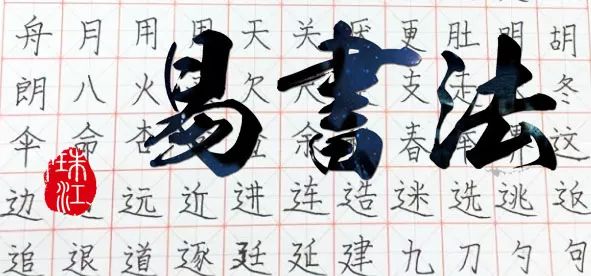 易書法
珠江
舟月用天关更肚明胡
朗八火欠支走冬
伞命杏余春这
边远近进连造迷选逃返
追退道逐廷延建九刀勺句